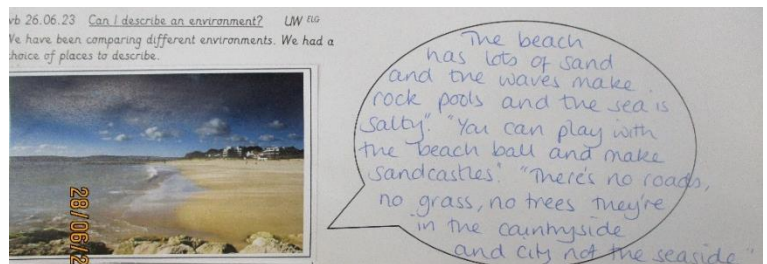 vb 26.06.23 Can I describe an environment? UW ELG
We have been comparing different environments. We had a
choice of places to describe.
28/06/2
The beach
has lots of sand
and the waves make
rock pools and the sea is
salty". "You can play with
the beach ball and make
sandcastles". "There's no roads,
no grass, no trees they're
in the countryside
and city not the seaside"